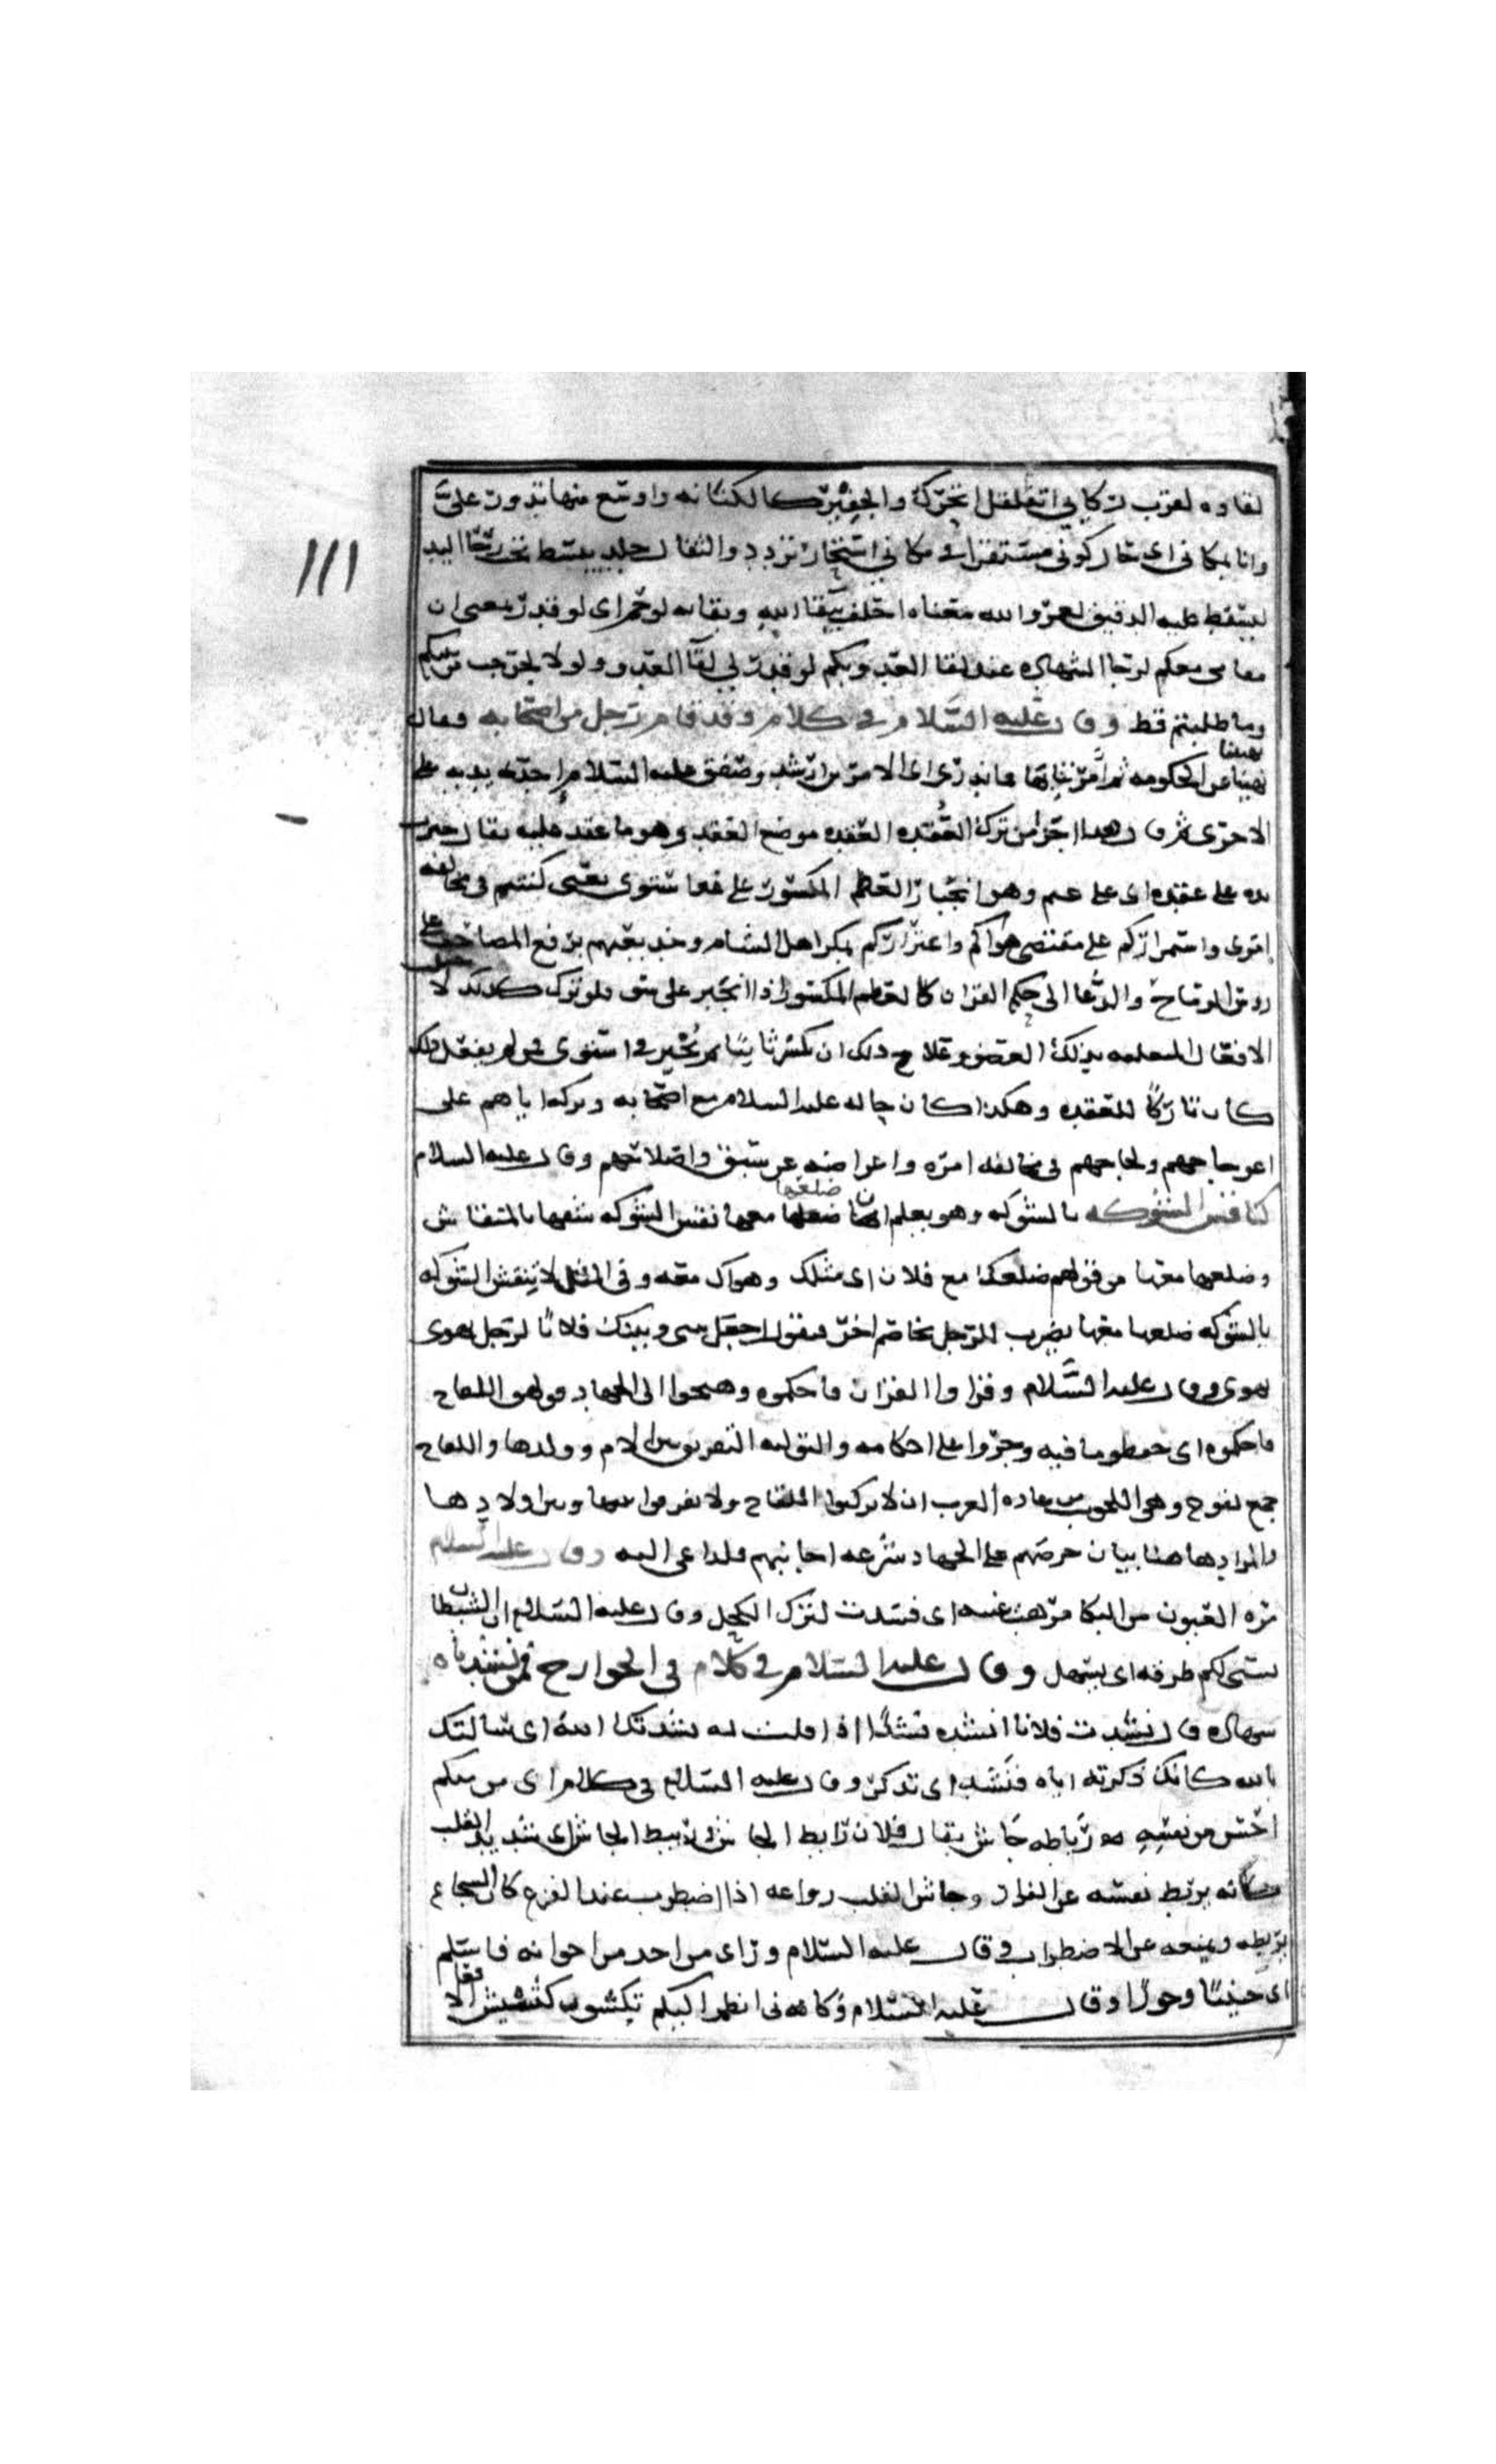 لقاوه لقرب ركابي اتقلقل اتحرك والجفير كالكنانه واوسع منها تدور علىّ
وانا بمكاني اى حال كوني مستقرا في مكاني استحار تردد والثفال جلد يبسط تحت رحا اليد
ليسقط عليه الدقيق لعمر والله معناه احلف ببقا الله وبقايه لو حم اى لو قدر معنى ان
مقامى معكم لرجا الشهاده عند لقا العدو بكم لو قدر لي لقا العدو ولولا لخرجت من بينكم
وما طلبتم قط وقال عليه السلام في كلام وقد قام رجل من اصحابه وقال
نهيتنا
نهيتنا عن الحكومه ثم امرتنا بها فما ندرى اى الامرين ارشد وصفق عليه السلام احدى يديه على
الاخرى ثم قال هذا جزا من ترك العُقده العقده موضع العقد وهو ما عقد عليه يقال جبرت
يده على عقده اى على عثم وهو انجبار العظم المكسور على غير استوى يعنى كنتم في مخالفه
امرى واستمراركم على مقتضى هواكم واغتراركم بمكر اهل الشام وخديعتهم برفع المصاحف على
روس الرماح والدعا الى حكم القران كالعظم المكسور اذا انجبر على فلو ترك كذلك
الافعال المتعلقه بذلك العضو وعلاج ذلك ان يكسر ثانيا ثم يُجبر في استوى فمن لم يفعل ذلك
كان تاركًا للعقده وهكذا كان حاله عليه السلام مع اصحابه وتركه اياهم على
اعوجاجهم ولجاجهم في مخالفه امره واعراضه عن واصلاحهم وقال عليه السلام
ضلعها
كناقش الشوكه بالشوكه وهو يعلم ان ضلعها معها نقش الشوكه بالمنقاش
وضلعها معها من قولهم ضلعك مع فلان اى ميلك وهواك معه وفي المثل لا تنقش الشوكه
بالشوكه فان ضلعها معها يضرب للرجل يخاصم اخر فيقول اجعل بينى وبينك فلانا لرجل يهوى
هواه وقال عليه السَّلام وقراوا القران فاحكموه وهيجوا الى الجهاد فولهوا اللقاح
فاحكموه اى حفظوا ما فيه وجروا على احكامه والتوليه التفريق بين الام وولدها واللقاح
جمع لقوح وهى الحلوب من عاده العرب ان لا يركبوا اللقاح ولا يفرقوا بينها وبين اولادها
والمراد هاهنا بيان حرصهم على الجهاد وسرعه اجابتهم لما دعى اليه وقال عليه السلام
مُره العيون من البكا مرهت عينه اى فسدت لترك الكحل وقال عليه السلام ان الشيطان
يسنى لكم طرقه اى يسهل وقال عليه السلام في كلام في الخوارج
قال نشدت فلانا انشده نشدًا اذا قلت له نشدتك الله اى سالتك
بالله كانك ذكرته اياه فنَشد اى تذكر وقال عليه السلام في كلام اى من منكم
احسّ من نفسه رباطه جاش يقال فلان رابط الجاش وربيط الجاش اى شديد القلب
كانه يربط نفسه عن الفرار وجاش القلب رواعه اذا اضطرب عند الفزع كان الشجاع
يربطه ويمنعه عن الاضطراب وقال عليه السلام وراى من احد من اخوانه فاشلم
اى جبنًا وخورًا وقال عليه السلام وكاننى انظر اليكم تكشون كشيش الا